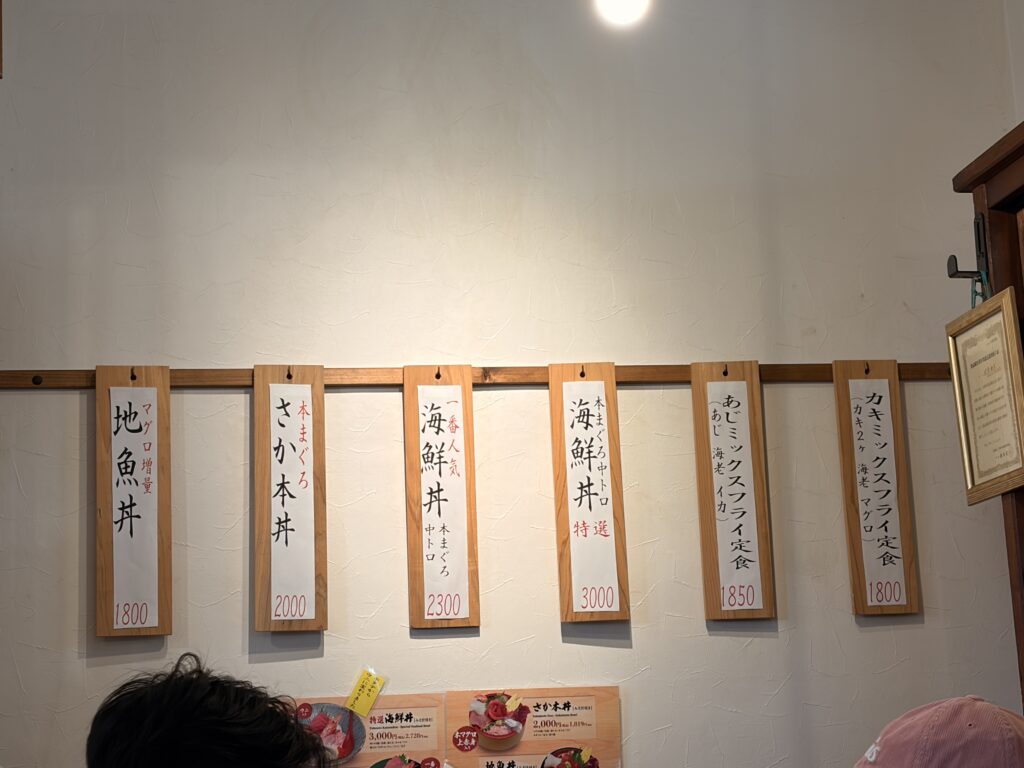 カキミックスフライ定食
(カキ2ヶ 海老 マグロ)
1800
あじミックスフライ定食
(あじ 海老 イカ)
1850
本まぐろ中トロ
海鮮丼
特選
3000
一番人気
海鮮丼
本まぐろ
中トロ
2300
本まぐろ
さか本丼
2000
マグロ増量
地魚丼
1800
特選海鮮丼
3,000円
さか本丼
2,000円
本マグロ
上赤身
地魚丼